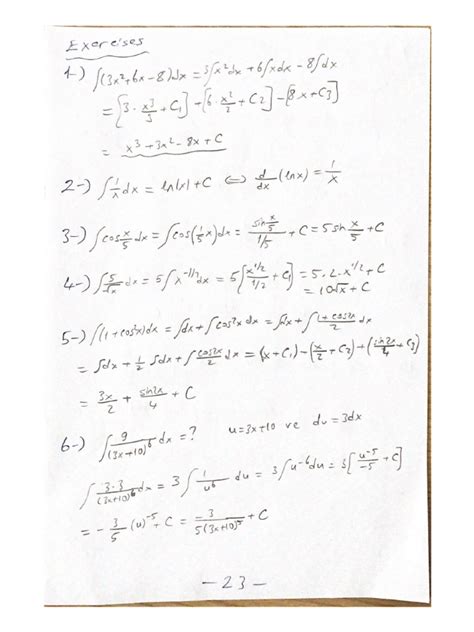 Exercises
1-) ∫(3x²+6x-8)dx = 3∫x²dx + 6∫xdx - 8∫dx
= [3·x³/3 + C₁] + [6·x²/2 + C₂] - [8x + C₃]
= x³ + 3x² - 8x + C
2-) ∫1/x dx = ln|x| + C ⇔ d/dx (lnx) = 1/x
3-) ∫cos x/5 dx = ∫cos(1/5 x)dx = (sin x/5)/(1/5) + C = 5 sin x/5 + C
4-) ∫5/√x dx = 5∫x^(-1/2) dx = 5[x^(1/2)/(1/2) + C₁] = 5·2·x^(1/2) + C
= 10√x + C
5-) ∫(1+cos²x)dx = ∫dx + ∫cos²x dx = ∫dx + ∫(1+cos2x)/2 dx
= ∫dx + 1/2 ∫dx + ∫cos2x/2 dx = (x + C₁) - (x/2 + C₂) + (sin2x/4 + C₃)
= 3x/2 + sin2x/4 + C
6-) ∫9/(3x+10)⁶ dx = ? u=3x+10 ve du=3dx
∫3·3/(3x+10)⁶ dx = 3∫1/u⁶ du = 3∫u⁻⁶du = 3[u⁻⁵/-5 + C]
= -3/5 (u)⁻⁵ + C = -3/5(3x+10)⁵ + C
- 23 -